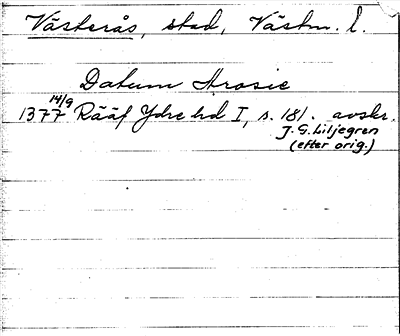 Västerås, stad, Västm. l.
Datum Arosie
14/9
1377 Rääf Ydre hd I, s. 181. avskr.
J. G. Liljegren
(efter orig.)